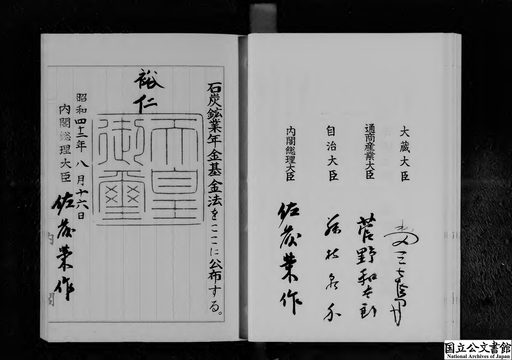 大蔵大臣 水田三喜男
通商産業大臣 菅野和太郎
自治大臣 藤枝泉介
内閣総理大臣 佐藤榮作
石炭鉱業年金基金法をここに公布する。
裕仁
天皇
御璽
昭和四十二年八月十六日
内閣総理大臣 佐藤榮作
内閣
国立公文書館
National Archives of Japan